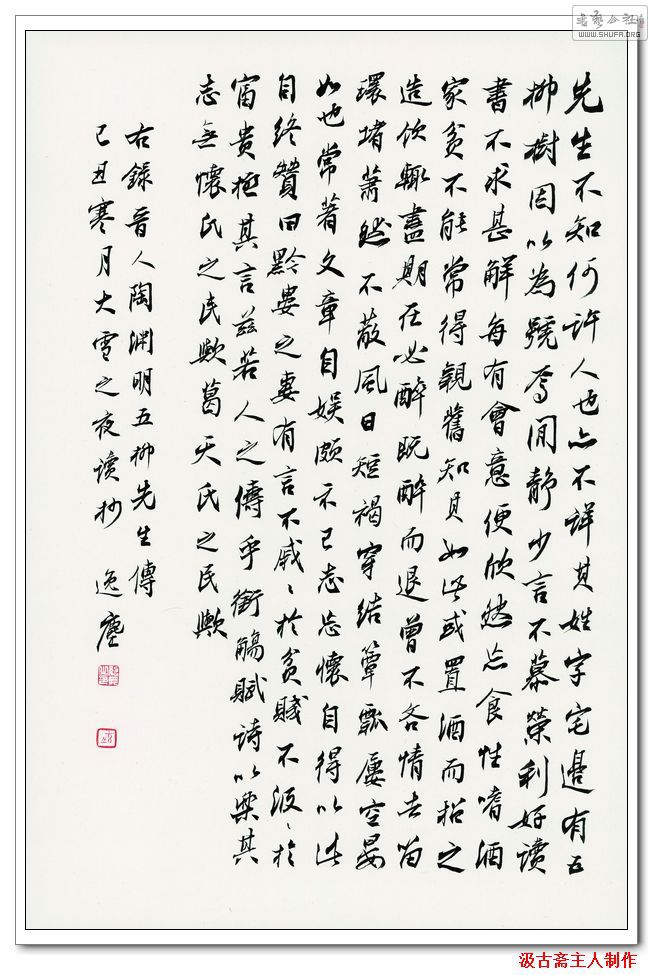 書藝公社
WWW.SHUFA.ORG
先生不知何許人也亦不詳其姓字宅邊有五
柳樹因以為號焉閒静少言不慕榮利好讀
書不求甚解每有會意便欣然忘食性嗜酒
家貧不能常得親舊知其如此或置酒而招之
造飲輒盡期在必醉既醉而退曾不吝情去留
環堵蕭然不蔽風日短褐穿結簞瓢屢空晏
如也常著文章自娱頗示已志忘懷自得以此
自終贊曰黔婁之妻有言不戚丶於貧賤不汲丶於
富貴極其言兹若人之儔乎銜觴賦诗以樂其
志無懷氏之民歟葛天氏之民歟
右錄晋人陶淵明五柳先生傳
己丑寒月大雪之夜读抄 逸塵
汲古斋主人制作